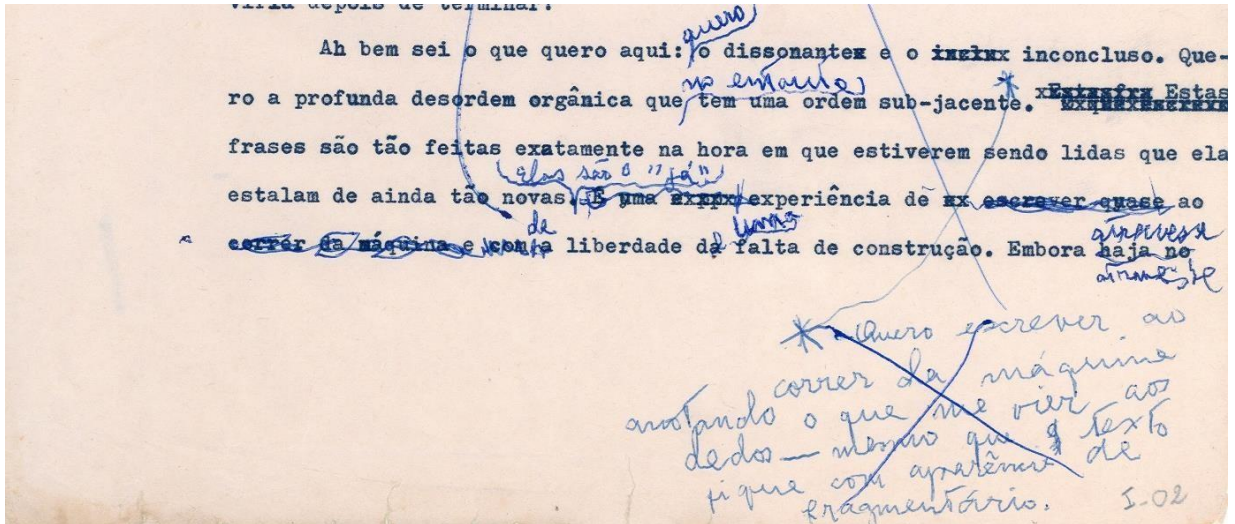 viria depois de terminar.
quero
Ah bem sei o que quero aqui: o dissonante e o inconcluso. Que-
no entanto
ro a profunda desordem orgânica que tem uma ordem sub-jacente. * Estas
frases são tão feitas exatamente na hora em que estiverem sendo lidas que ela
Elas são o "já"
estalam de ainda tão novas. E uma experiência de escrever quase ao
de uma atravessa
correr da máquina e com a liberdade da falta de construção. Embora haja no
* Quero escrever ao
correr da máquina
anotando o que me vier aos
dedos — mesmo que o texto
fique com aparência de
fragmentário.
I-02